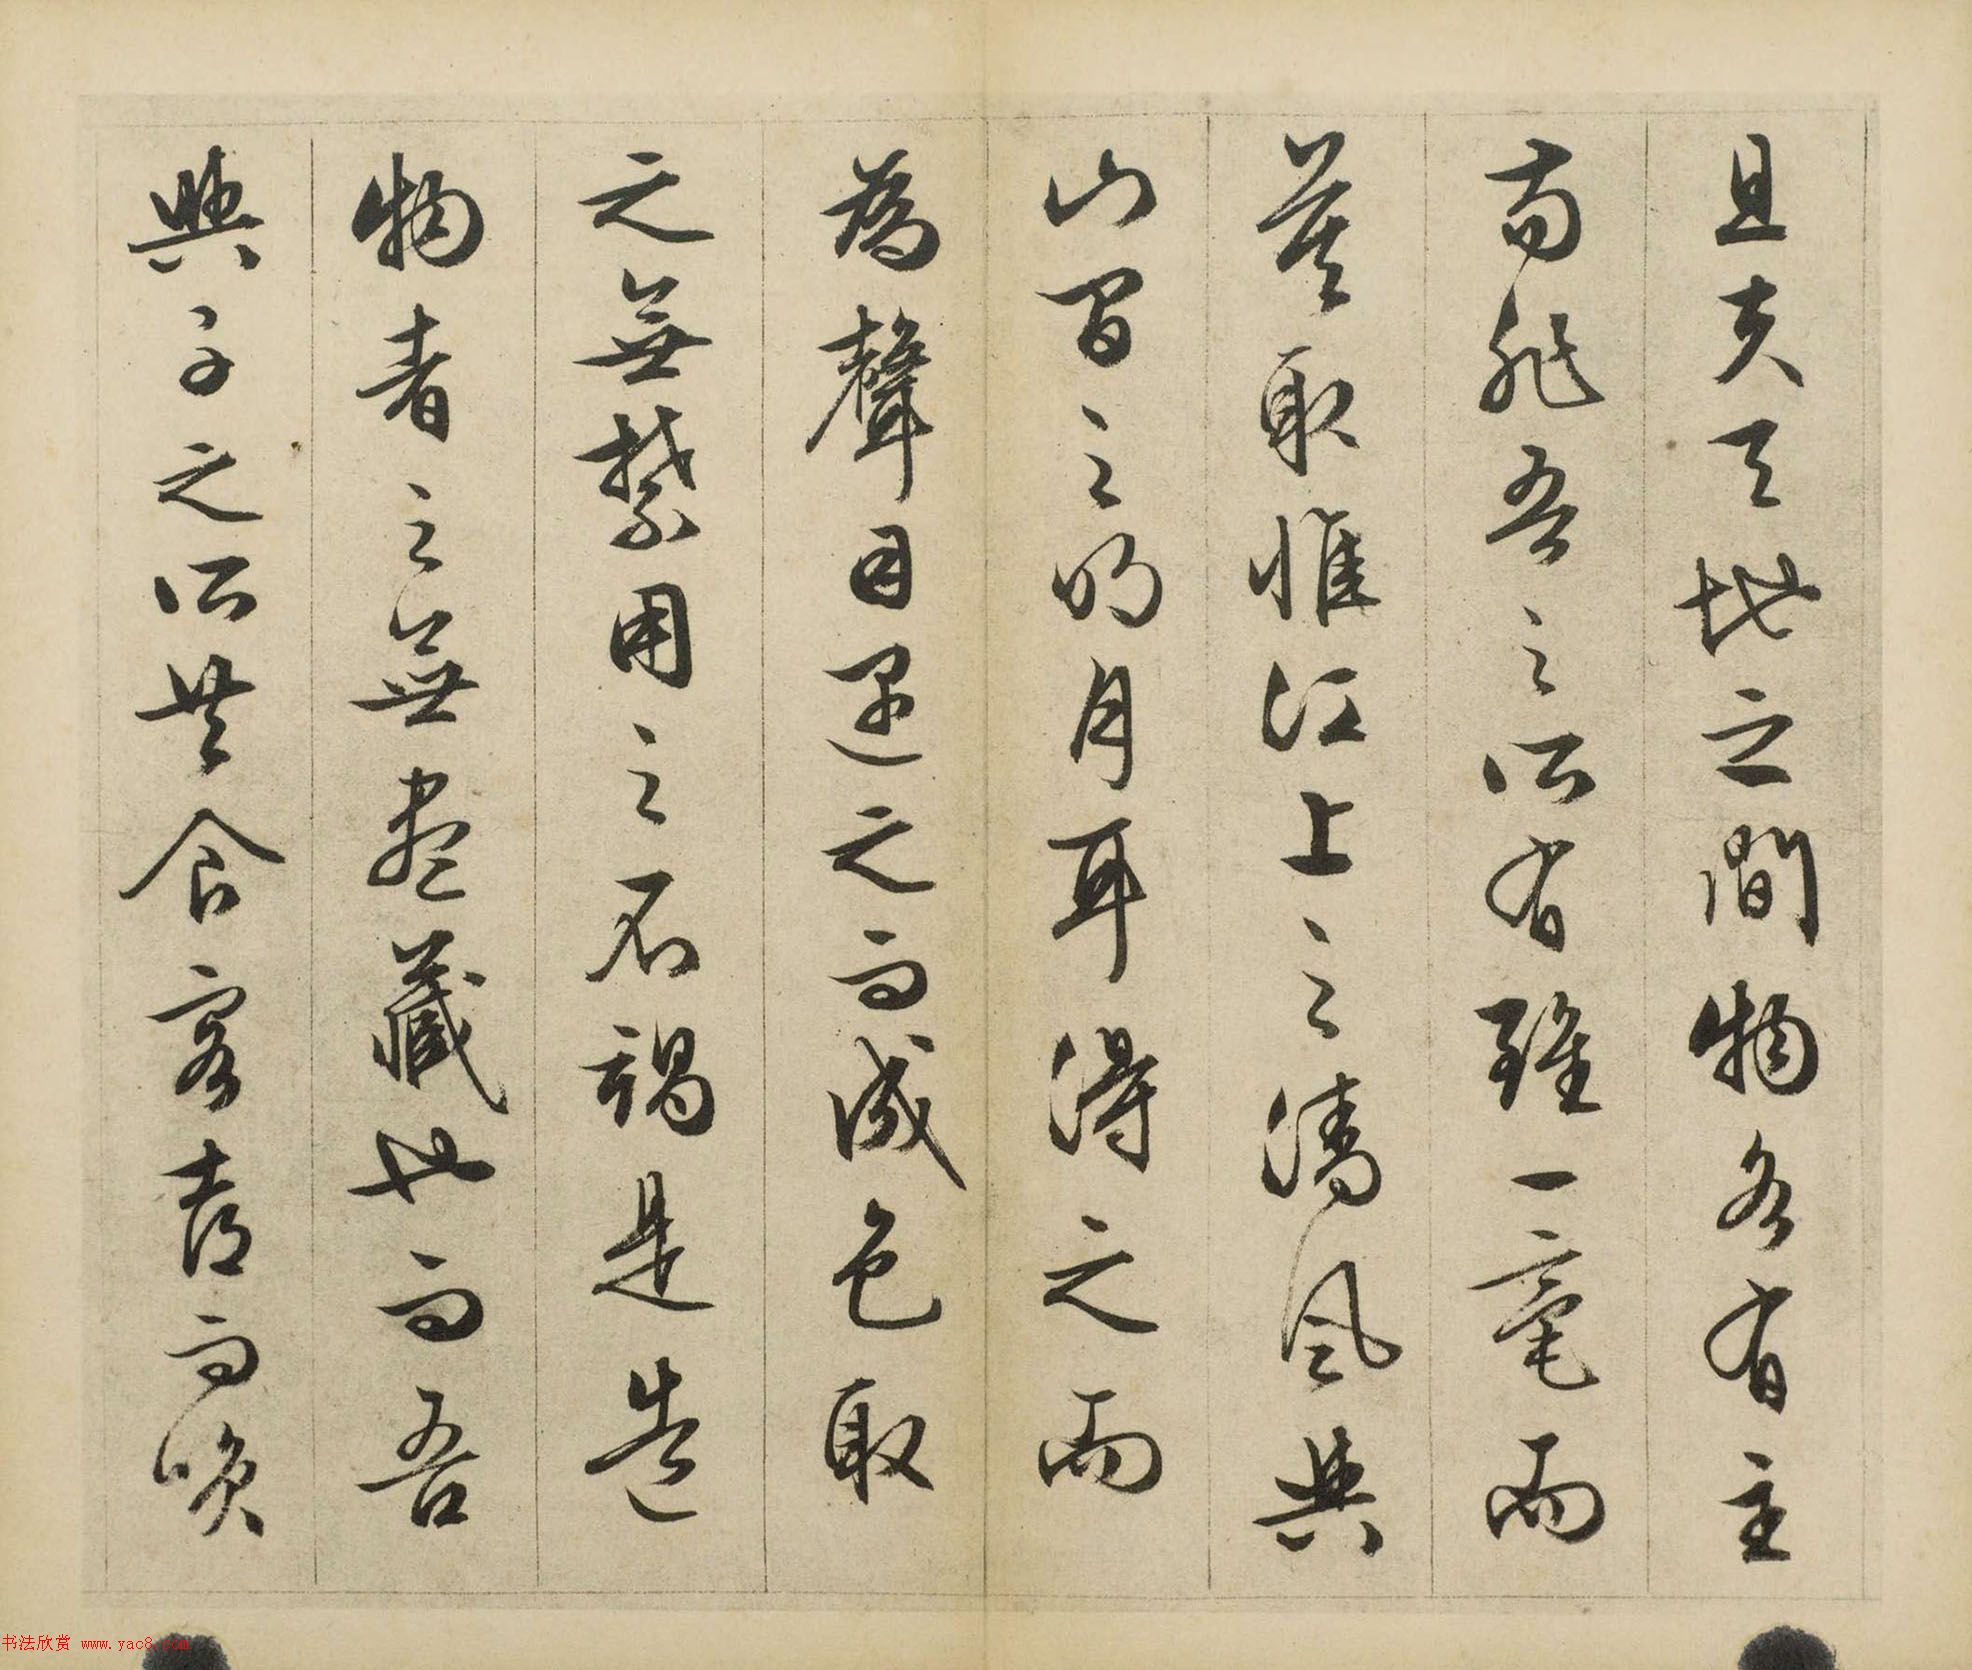 且夫天地之間物各有主
苟非吾之所有雖一毫而
莫取惟江上之清風與
山間之明月耳得之而
為聲目遇之而成色取
之無禁用之不竭是造
物者之無盡藏也而吾
與子之所共食客喜而咲
书法欣赏 www.yac8.com